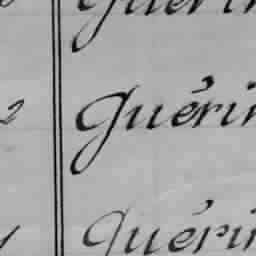 Guérin
2 Guérin
Guérin